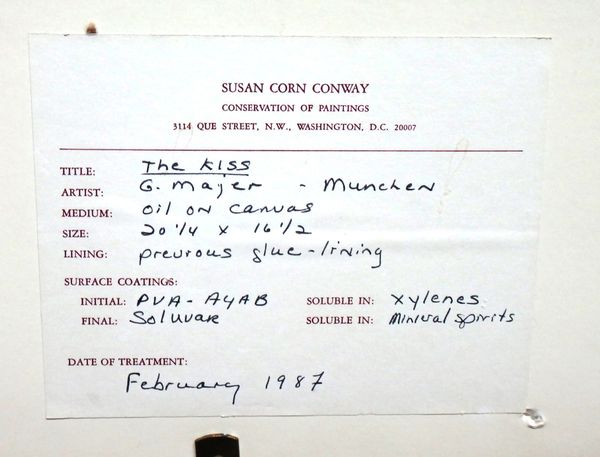 SUSAN CORN CONWAY
CONSERVATION OF PAINTINGS
3114 QUE STREET, N.W., WASHINGTON, D.C. 20007
TITLE: The Kiss
ARTIST: G. Mayer - Munchen
MEDIUM: oil on canvas
SIZE: 20 1/4 x 16 1/2
LINING: previous glue-lining
SURFACE COATINGS:
INITIAL: PVA-AYAB SOLUBLE IN: Xylenes
FINAL: Soluvar SOLUBLE IN: Mineral spirits
DATE OF TREATMENT:
February 1987